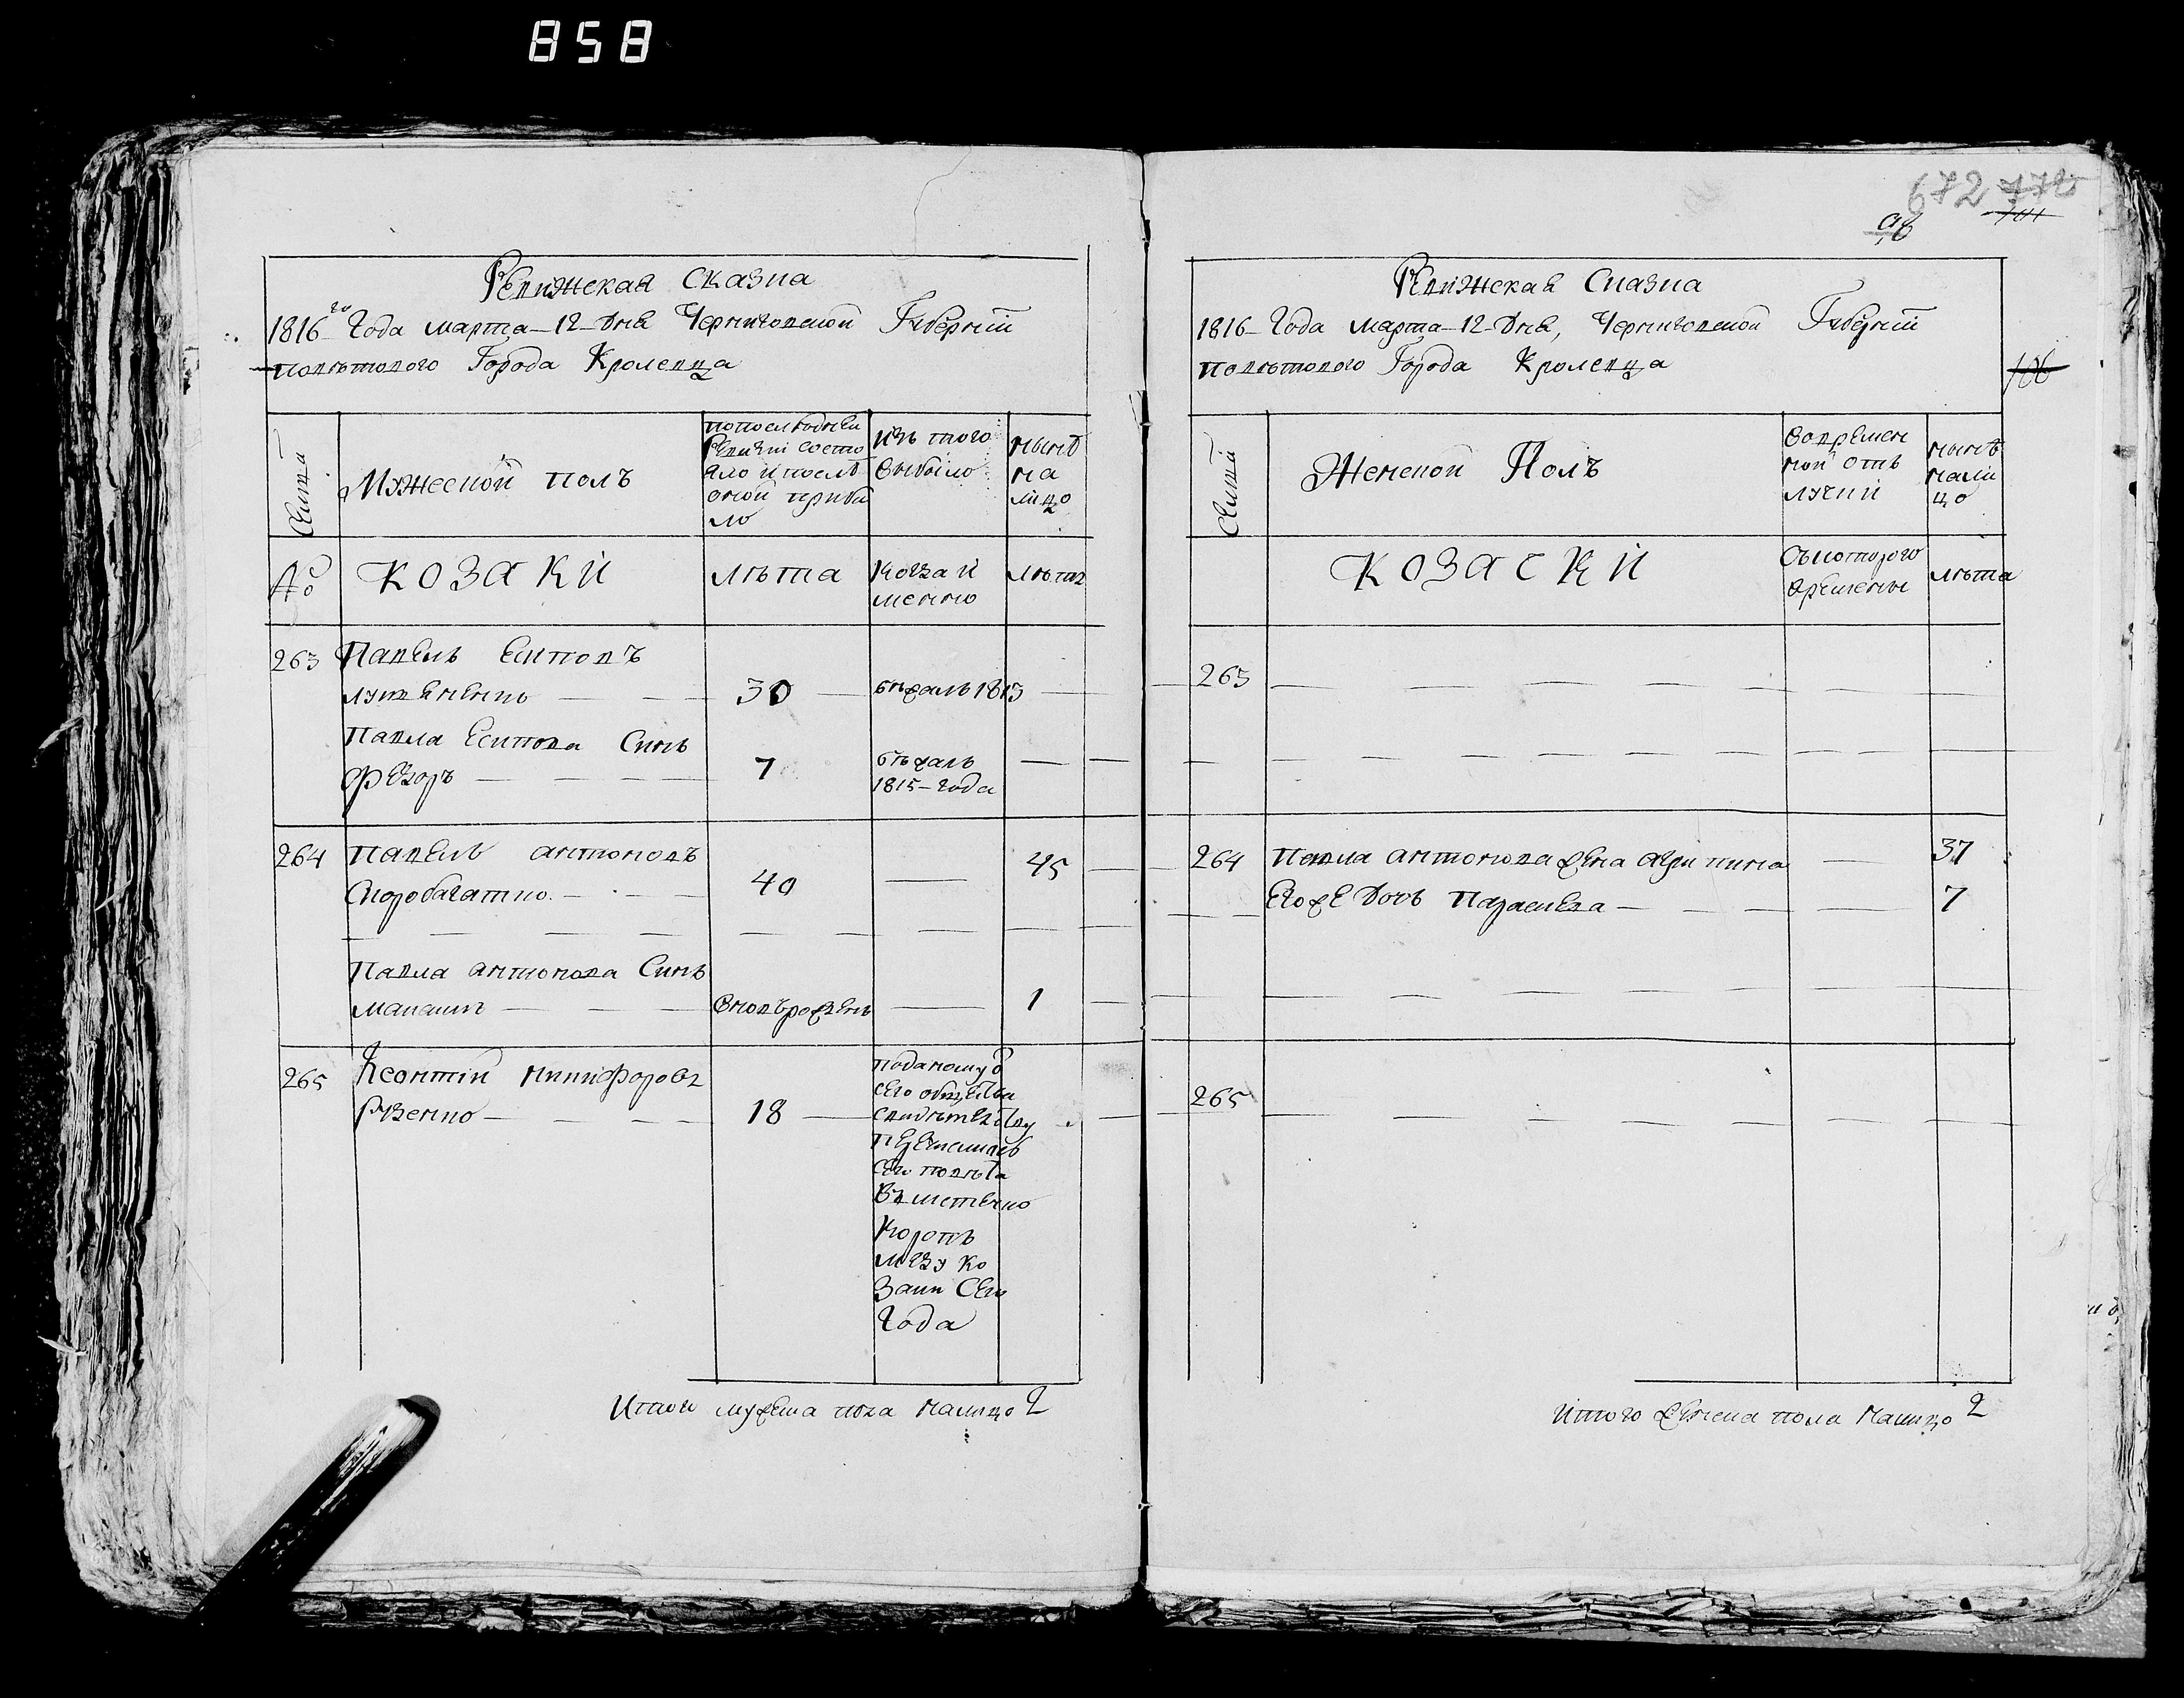 858
672 772
Ревижская Сказка
1816го Года марта 12 дня Черниговской Губернии
поветового Города Кролевца
Семьи
Мужеской полъ
попоследней
Ревизии состо
яло и после
оной прибы
ло
Изъ того
выбыло
ныне
на
лицо
№
КОЗАКИ
лета
Когда и
менно
лета
263 Павелъ Есиповъ
30 бежалъ 1813
Павла Есипова Синъ
Федоръ 7 бежалъ
1815 года
264 Павелъ антоновъ
Скоробагатко 40 45
Павла антонова Синъ
вновьрожденъ 1
265 Леонтий никифоровъ
18
поданому
сего общества
свидетелству
перечислилъ
сего повета
въместечко
Коропъ
между ко
заки Сего
Года
Итого мужеска пола налицо 2
Ревижская Сказка
1816 Года марта 12 дня, Черниговской Губернии
поветового Города Кролевца
106
Семьи
Женской Полъ
вовремен
ной отъ
лучки
ныне
нали
цо
КОЗАЧКИ
Скоторого
времены
лета
263
264 Павла антонова жена агрипина 37
Егоже Дочь Параскева 7
265
Итого женска пола налицо 2